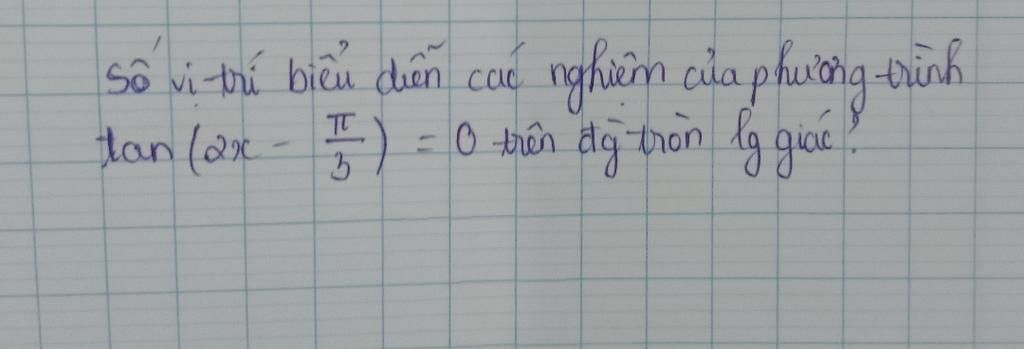 Số vị trí biểu diễn các nghiệm của phương trình
tan (2x - π/3) = 0 trên đg tròn lg giác?